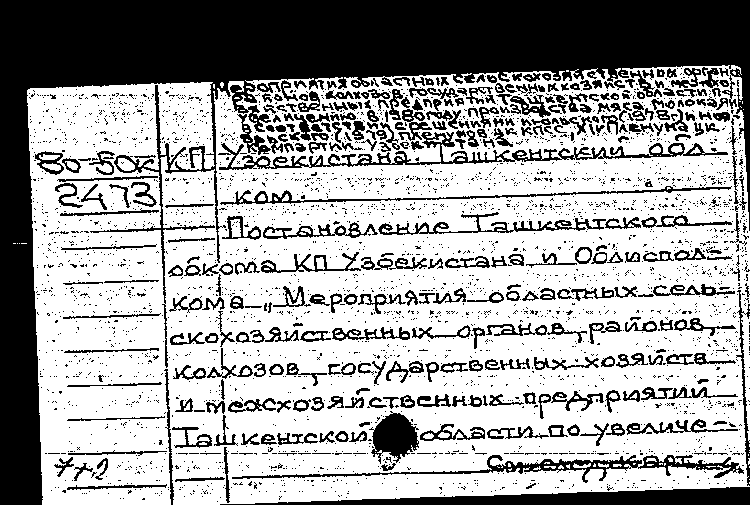 Мероприятия областных сельскохозяйственных органов
районов колхозов, государственных хозяйств и межхо-
зяйственных предприятий Ташкентской области по
увеличению в 1980 году производства мяса, молока, яиц
в свете решений июльского (1978г.) и ноя-
(1979) пленумов ЦК КПСС, XIV Пленума ЦК
Компартии Узбекистана
80-50к КП Узбекистана. Ташкентский обл-
2473 ком.
Постановление Ташкентского
обкома КП Узбекистана и Облиспол-
кома „Мероприятия областных сель-
скохозяйственных органов, районов,
колхозов, государственных хозяйств
и межхозяйственных предприятий
Ташкентской области по увеличе-
7+2 См. след. карт.